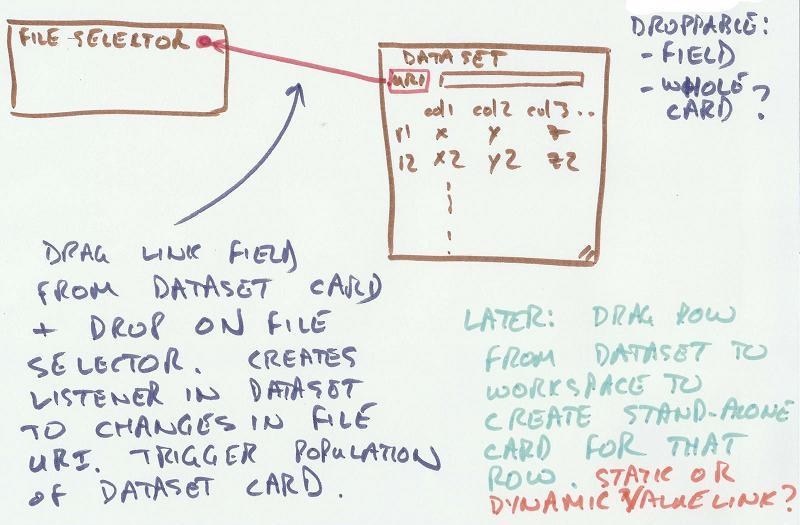 FILE SELECTOR
DATASET
URI
col1 col2 col3 ..
r1 x y z
r2 x2 y2 z2
DROPPABLE:
- FIELD
- WHOLE
CARD?
DRAG LINK FIELD
FROM DATASET CARD
+ DROP ON FILE
SELECTOR. CREATES
LISTENER IN DATASET
TO CHANGES IN FILE
URI. TRIGGER POPULATION
OF DATASET CARD.
LATER: DRAG ROW
FROM DATASET TO
WORKSPACE TO
CREATE STAND-ALONE
CARD FOR THAT
ROW. STATIC OR
DYNAMIC VALUE LINK?